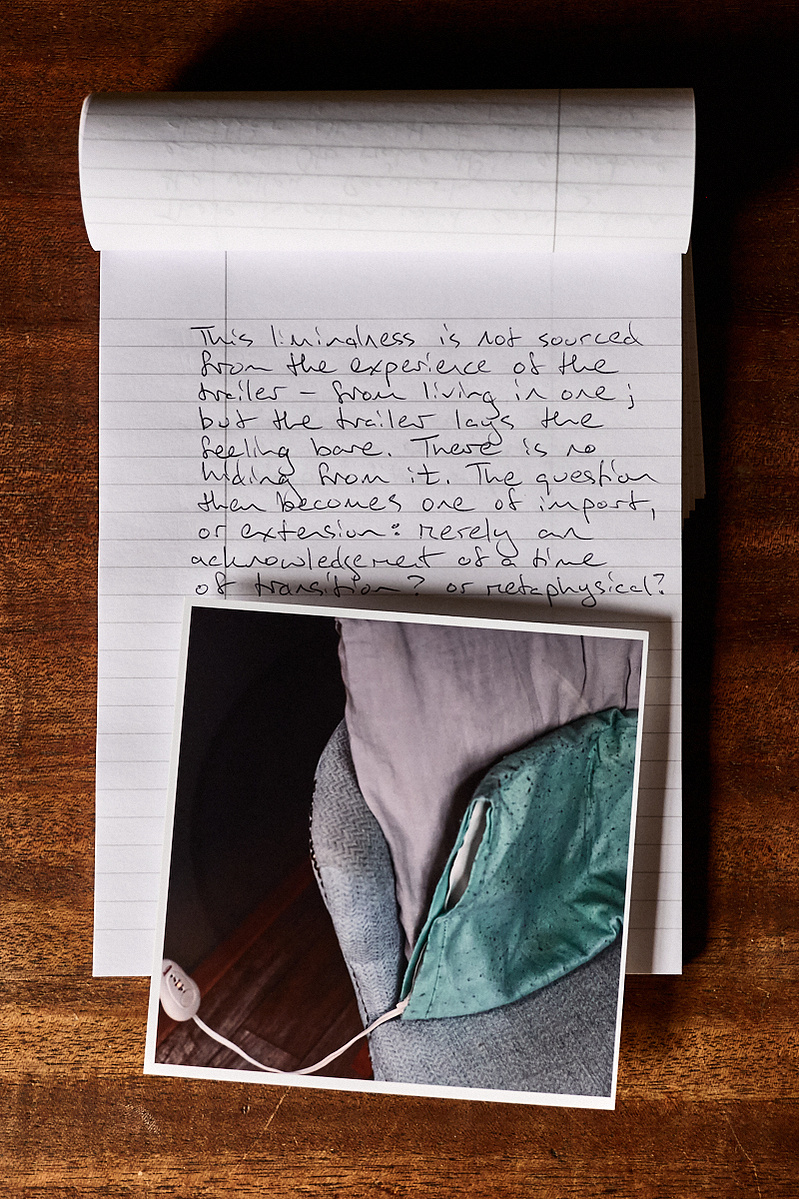 This liminalness is not sourced
from the experience of the
trailer – from living in one;
but the trailer lays the
feeling bare. There is no
hiding from it. The question
then becomes one of import,
or extension: merely an
acknowledgement of a time
of transition? or metaphysical?